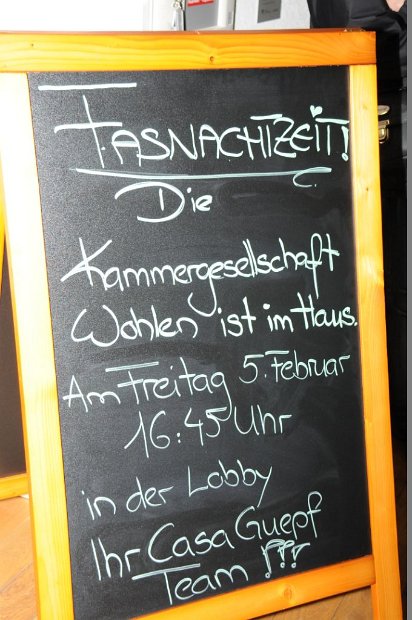 FASNACHTZEIT!
Die
Kammergesellschaft
Wohlen ist im Haus.
Am Freitag 5. Februar
16:45 Uhr
in der Lobby
Ihr Casa Guepf
Team !!!